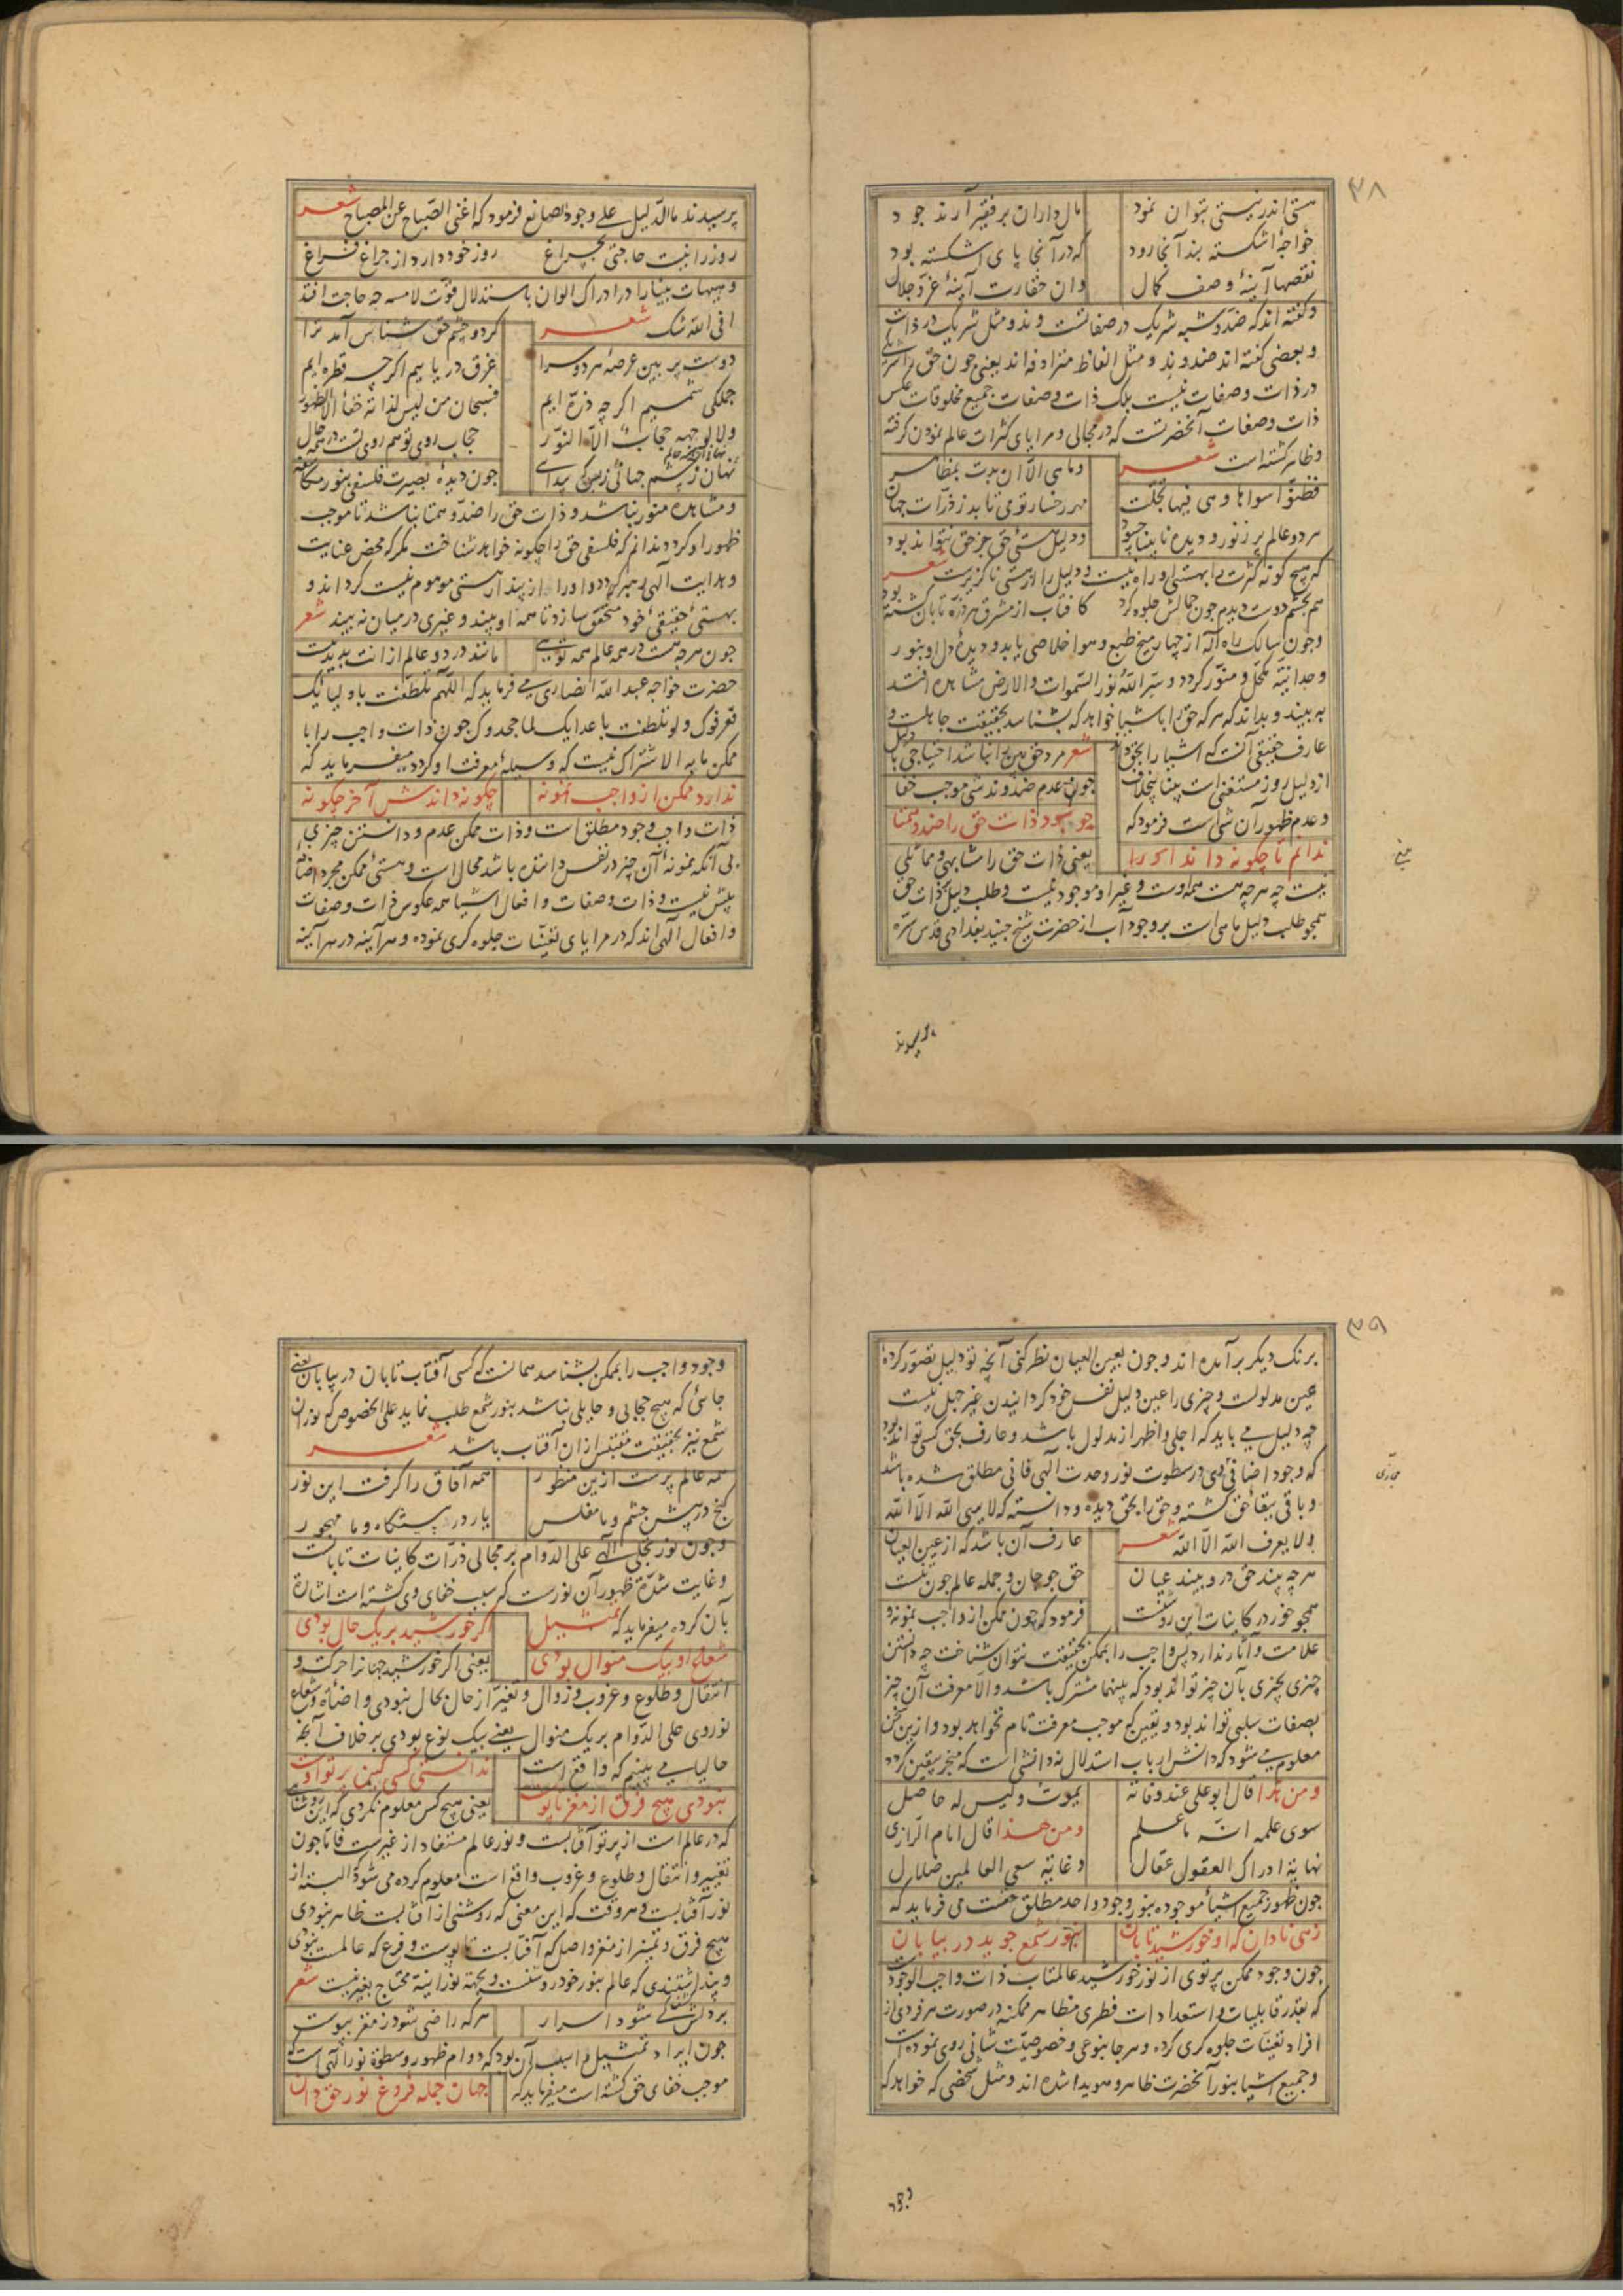 ۳۸
هستی اندر نیستی بتوان نمود
مال داران بر فقیر آرند جود
خواجهٔ اشکسته بند آنجا رود
که در آنجا پای اشکسته بود
نقصها آینهٔ وصف کمال
وان حقارت آینهٔ عز و جلال
و گفته اند که ضد و شبه شریک در صفاتست و ند و مثل شریک در ذات
و بعضی گفته اند ضد و ند و مثل الفاظ مترادفه اند یعنی چون حق را شریکی
در ذات و صفات نیست بلک ذات و صفات جمیع مخلوقات عکس
ذات و صفات آنحضرتست که در مجالی و مرایای کثرات عالم نمودن گرفته
و ظاهر گشته است شعر
وما هی الا ان بدت بمظاهر
فظنوا سواها و هی فیها تجلت
مهر رخسار تو می تابد ز ذرات جهان
هر دو عالم پر ز نور و دیده نابینا چه سود
و دلیل هستی حق جز حق نتواند بود
که هیچ گونه کثرت را بهستی او راه نیست و دلیل را از هستی ناگزیرست شعر
هم بچشم دوست دیدم چون جمالش جلوه کرد
کافتاب از مشرق هر ذره تابان گشته بود
و چون سالک راه اله از چهار میخ طبع و هوا خلاصی یابد و دیدهٔ دل او بنور
وحدانیّة مکحل و منور گردد و سرّ الله نور السموات والارض مشاهده افتد
به بیند و بداند که هر که حق را باشیا خواهد که بشناسد بحقیقت جاهلست و
عارف حقیقی آنست که اشیا را بحق داند
شعر مرد حق بین را کجا باشد احتیاجی با دلیل
از دلیل روز مستغنی است بینا بیخلاف
چون عدم ضد و ند شی موجب خفا
و عدم ظهور آن شی است فرمود که
چو نبود ذات حق را ضد و همتا
ندانم تا چگونه داند او را
یعنی ذات حق را مشابهی و مماثلی
نیست چه هر چه هست همه اوست و غیر او موجود نیست و طلب دلیل ذات حق
همچو طلب دلیل ماهی است بر وجود آب از حضرت شیخ جنید بغدادی قدس سره
پرسیدند
پرسیدند ما الدلیل علی وجود الصانع فرمود که اغنی الصّباح عن المصباح شعر
روز را نیست حاجتی بچراغ
روز خود دارد از چراغ فراغ
و هیهات بینا را در ادراک الوان باستدلال قوّت لامسه چه حاجت افتد
افی الله شک شعر
گر دو چشم حق شناس آمد ترا
دوست پر بین عرصهٔ هر دو سرا
غرق دریاییم اگرچه قطره ایم
جملگی شمسیم اگر چه ذره ایم
فسبحان من لیس لذاته خفاء الا الظهور
ولا لوجهه حجاب الا النور
حجاب روی تو هم روی تست در همه حال
نهان ز چشم جهانی ز بس که پیدایی
چون دیدهٔ بصیرت فلسفی بنور مکاشفه
و مشاهده منور نباشد و ذات حق را ضد و همتا نباشد تا موجب
ظهور او گردد ندانم که فلسفی حق را چگونه خواهد شناخت مگر که محض عنایت
و هدایت الهی رهبر گردد و او را از پندار هستی موهوم نیست گرداند و
بهستیٔ حقیقیٔ خود متحقق سازد تا همه او بیند و غیری در میان نه بیند شعر
چون هر چه هست در همه عالم همه تویی
مانند در دو عالم از انت پدید نیست
حضرت خواجه عبد الله انصاری می فرماید که اللهم تلطفت باولیائک
فعرفوک ولو تلطفت باعدائک لما جحدوک چون ذات واجب را با
ممکن ما به الاشتراک نیست که وسیلهٔ معرفت او گردد میفرماید که
ندارد ممکن از واجب نمونه
چگونه داندش آخر چگونه
ذات واجب وجود مطلق است و ذات ممکن عدم و دانستن چیزی
بی آنکه نمونهٔ آن چیز در نفس داننده باشد محال است و هستی ممکن مجرد اضافه
بیش نیست و ذات و صفات و افعال اشیا همه عکوس ذات و صفات
و افعال الهی اند که در مرایای تعینات جلوه گری نموده و هر آینه در هر آینه
۳۹
برنگ دیگر برآمده اند و چون بعین العیان نظر کنی آنچه تو دلیل تصور کردهٔ
عین مدلولست و چیزی را عین دلیل نفس خود گردانیدن غیر جهل نیست
چه دلیل می باید که اجلی و اظهر از مدلول باشد و عارف بحق کسی تواند بود
که وجود اضافیٔ وی در سطوت نور وحدت الهی فانی مطلق شده باشد
و باقی ببقاء حق گشته و حق را بحق دیده و دانسته که لا یری الله الا الله
ولا یعرف الله الا الله شعر
عارف آن باشد که از عین العیان
هر چه بیند حق درو بیند عیان
حق چو جان و جمله عالم چون تنست
همچو خور در کاینات این روشنست
فرمود که چون ممکن از واجب نمونه و
علامت و آثار ندارد پس واجب را بممکن بحقیقت نتوان شناخت چه دانستن
چیزی بچیزی بآن چیز تواند بود که بینهما مشترک باشد و الا معرفت آن چیز
بصفات سلبی تواند بود و یقین که موجب معرفت تام نخواهد بود و ازین سخن
معلوم می شود که دانش ارباب استدلال نه دانشی است که منجر بیقین گردد
و من هذا قال ابو علی عند وفاته
یموت و لیس له حاصل
سوی علمه انه ما علم
و من هذا قال امام الرازی
نهایة ادراک العقول عقال
و غایة سعی العالمین ضلال
چون ظهور جمیع اشیاء موجوده بنور وجود واحد مطلق حقست می فرماید که
زهی نادان که او خورشید تابان
بنور شمع جوید در بیابان
چون وجود ممکن پرتوی از نور خورشید عالمتاب ذات واجب الوجود
که بقدر قابلیات و استعدادات فطری مظاهر ممکنه در صورت هر فردی از
افراد تعینات جلوه گری کرده و هر جا بنوعی و خصوصیت شانی روی نموده است
و جمیع اشیا بنور آنحضرت ظاهر و هویدا شده اند و مثل شخصی که خواهد که
وجود
وجود واجب را بممکن بشناسد همانست که کسی آفتاب تابان در بیابان یعنی
جائی که هیچ حجابی و حایلی نباشد بنور شمع طلب نماید علی الخصوص که نور آن
شمع نیز بحقیقت مقتبس از ان آفتاب باشد شعر
همه عالم پرست ازین منظور
همه آفاق را گرفت این نور
گنج در پیش چشم و ما مفلس
یار در پیشگاه و ما مهجور
و چون نور تجلی الهی علی الدوام بر مجالی ذرات کاینات تابانست
و غایت شدّة ظهور آن نورست که سبب خفای وی گشته است اشارة
بآن کرده میفرماید که تمثیل
اگر خورشید بر یک حال بودی
شعاع او بیک منوال بودی
یعنی اگر خورشید جهانرا حرکت و
انتقال و طلوع و غروب و زوال و تغیر از حال بحال نبودی و اضاءة و شعاع
نور وی علی الدوام بر یک منوال یعنی بیک نوع بودی بر خلاف آنچه
حالیا می بینیم که واقع است
ندانستی کسی کین پرتو اوست
نبودی هیچ فرق از مغز تا پوست
یعنی هیچ کس معلوم نکردی که این روشنائی
که در عالم است از پرتو آفتابست و نور عالم مستفاد از غیرست فاما چون
تغییر و انتقال و طلوع و غروب واقع است معلوم کرده می شود که البته از
نور آفتابست و هر وقت که این معنی که روشنی از آفتابست ظاهر نبودی
هیچ فرق و تمییز از مغز و اصل که آفتابست تا پوست و فرع که عالمست نبودی
و پنداشتندی که عالم بنور خود روشنست و بجهة نورانیة محتاج بغیر نیست شعر
هر که راضی شود ز مغز بپوست
چون ایراد تمثیل از برای آن بود که دوام ظهور و سطوة نور الهی است که
موجب خفای حق گشته است میفرماید که
جهان جمله فروغ نور حق دان